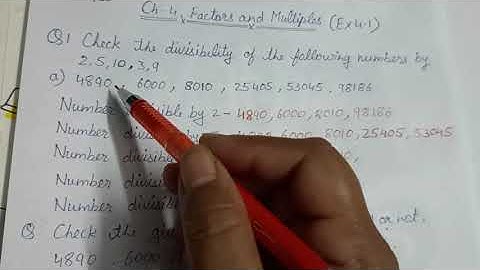 Ch-4, Factors and Multiples (Ex 4.1)
Q1 Check the divisibility of the following numbers by
2,5,10,3,9
a) 4890, 6000, 8010, 25405, 53045, 98186
Number divisible by 2 - 4890, 6000, 8010, 98186
Number divisible 6000, 8010, 25405, 53045
Number
Number divisi
Number divis
Q Check the or not.
4890 6000